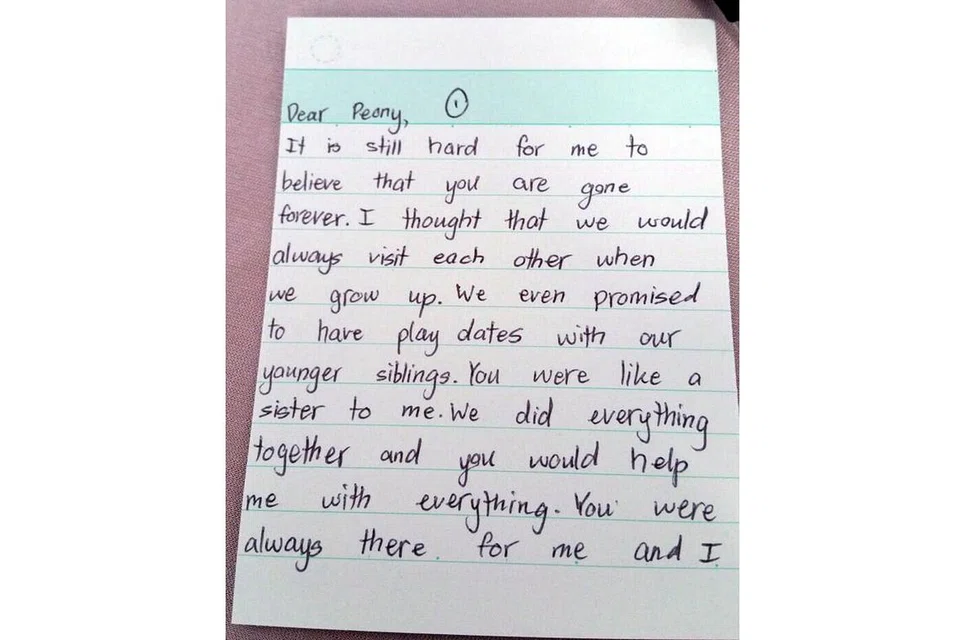 Dear Peony, ①
It is still hard for me to
believe that you are gone
forever. I thought that we would
always visit each other when
we grow up. We even promised
to have play dates with our
younger siblings. You were like a
sister to me. We did everything
together and you would help
me with everything. You were
always there for me and I